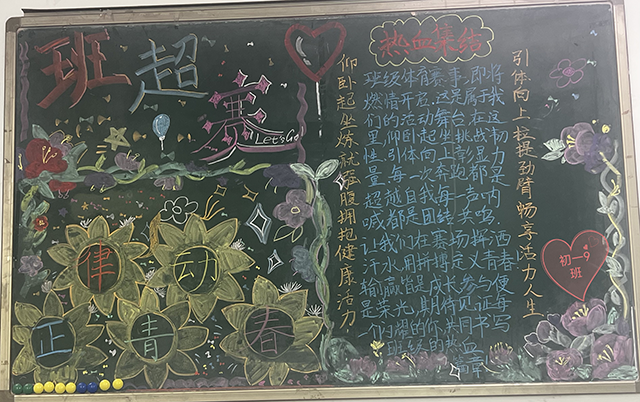 班超赛
Let's Go!
律动
正青春
仰卧起坐炼就强腹拥抱健康活力
热血集结
班级体育赛事即将
燃情开启,这是属于我
们的活动舞台在这
里,仰卧起坐挑战韧
性,引体向上彰显力
量,每一次奔跑都是
超越自我,每一声呐
喊都是团结共鸣。
让我们在赛场挥洒
汗水,用拼搏定义青春
输赢皆是成长,参与便
是荣光,期待见证每
耀的你,共同书写
们班级的热血篇章
引体向上拉提劲臂畅享活力人生
初一9
班